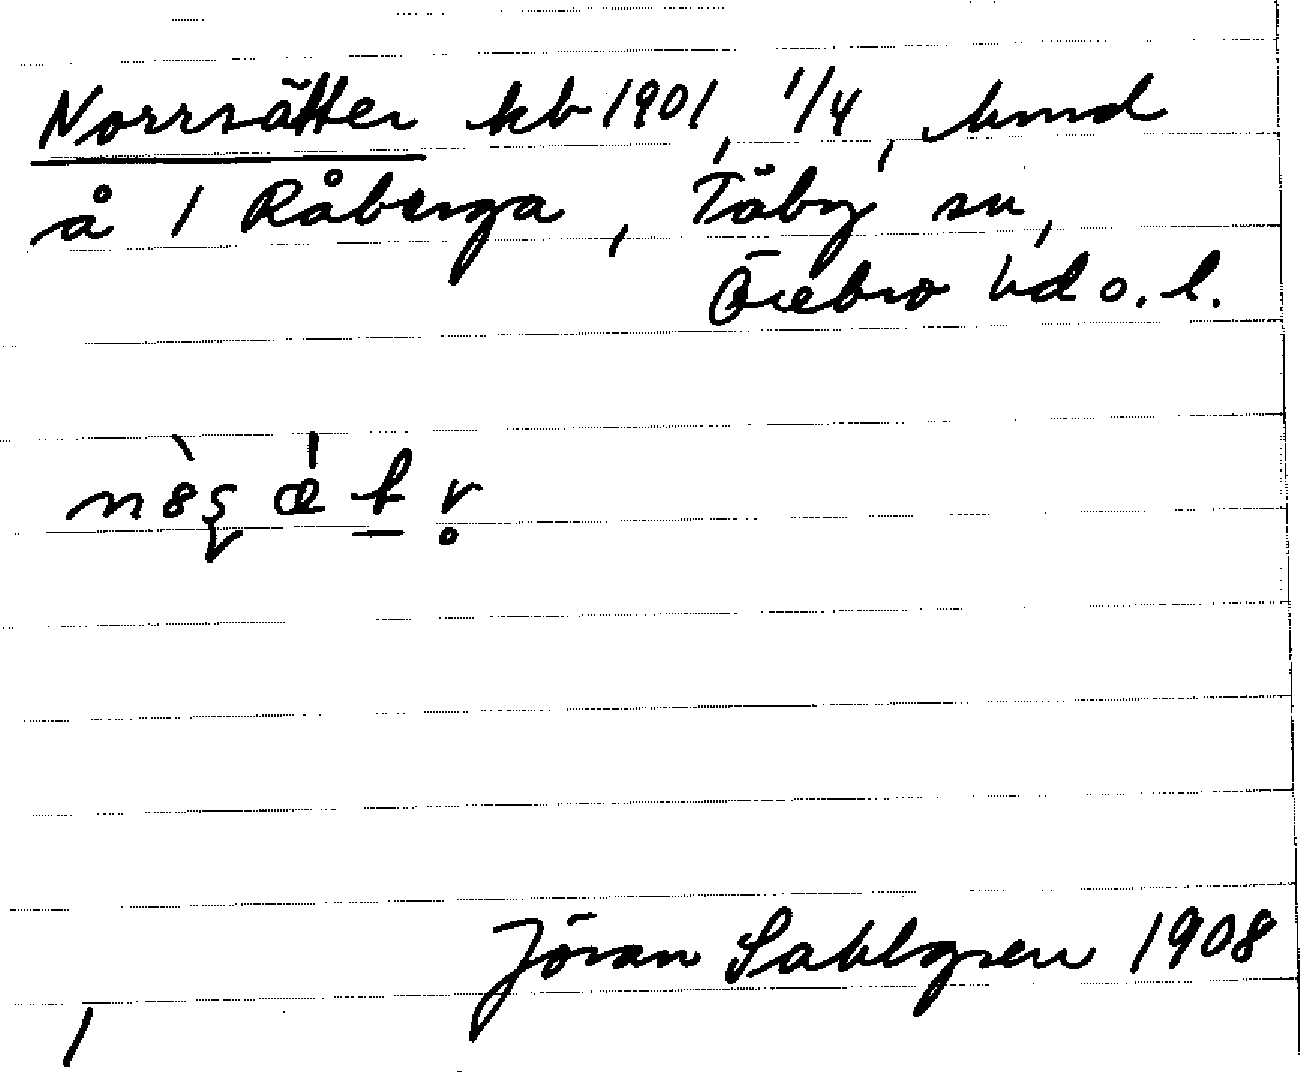 Norrsätter kb 1901, 1/4, hmd
å 1 Råberga, Täby sn,
Örebro hd o. l.
Jöran Sahlgren 1908